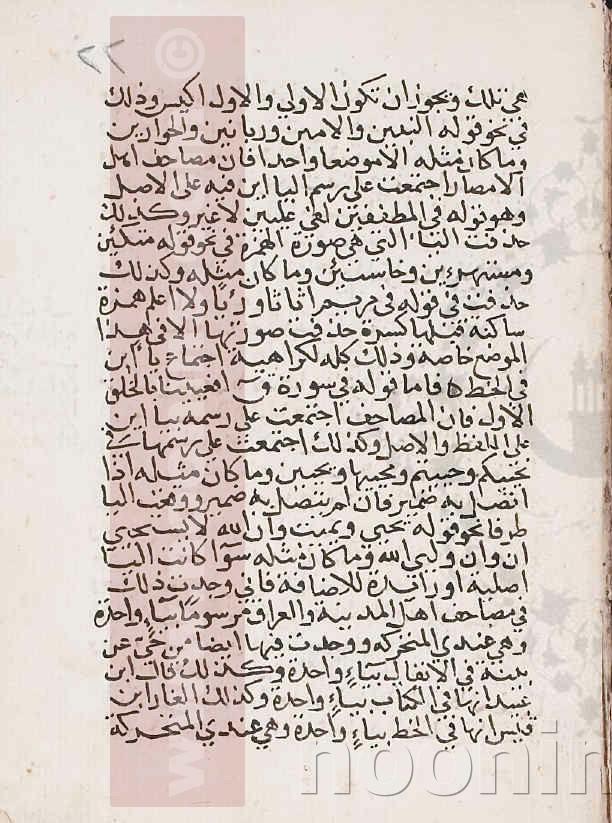 ٢٢
هي تلك ويجوز ان تكون الاولى والاول اكيس وذلك
في نحو قوله النبين والامين وربانين والحوارين
وما كان مثله الا موضعا واحدا فان مصاحف اهل
الامصار اجتمعت على رسم اليا اين فيه على الاصل
وهو قوله في المطففين لفي عليين لا غير وكذلك
حذفت الياء التي هي صورة الهمزة في نحو قوله متكئين
ومستهزءين وخاسئين وما كان مثله وكذلك
حذفت في قوله في مريم اثاثا ورئيا ولا اعلم همزة
ساكنة قبلها كسرة حذفت صورتها الا في هذا
الموضع خاصة وذلك كله لكراهية اجتماع ياءين
في الخط فاما قوله في سورة ق افعيينا بالخلق
الاول فان المصاحف اجتمعت على رسمه بيا اين
على اللفظ والاصل وكذلك اجتمعت على رسمها في
يحييكم وحييتم ويحييها ويحيين وما كان مثله اذا
اتصل به ضمير فان لم يتصل به ضمير ووقعت اليا
طرفا نحو قوله يحيى ويميت وان الله لا يستحيي
ان وان وليي الله وما كان مثله سوا كانت اليا
اصلية او زائدة للاضافة فاني وجدت ذلك
في مصاحف اهل المدينة والعراق مرسوما بياء واحدة
وهي عندي المتحركة ووجدت فيها ايضا من حي عن
بينة في الانفال بياء واحدة وكذلك قال ابو
عبيد انها في الكتاب بياء واحدة وكذلك الغاز ابن
قيس انها في الخط بياء واحدة وهي عندي المتحركة
www
©
noonin